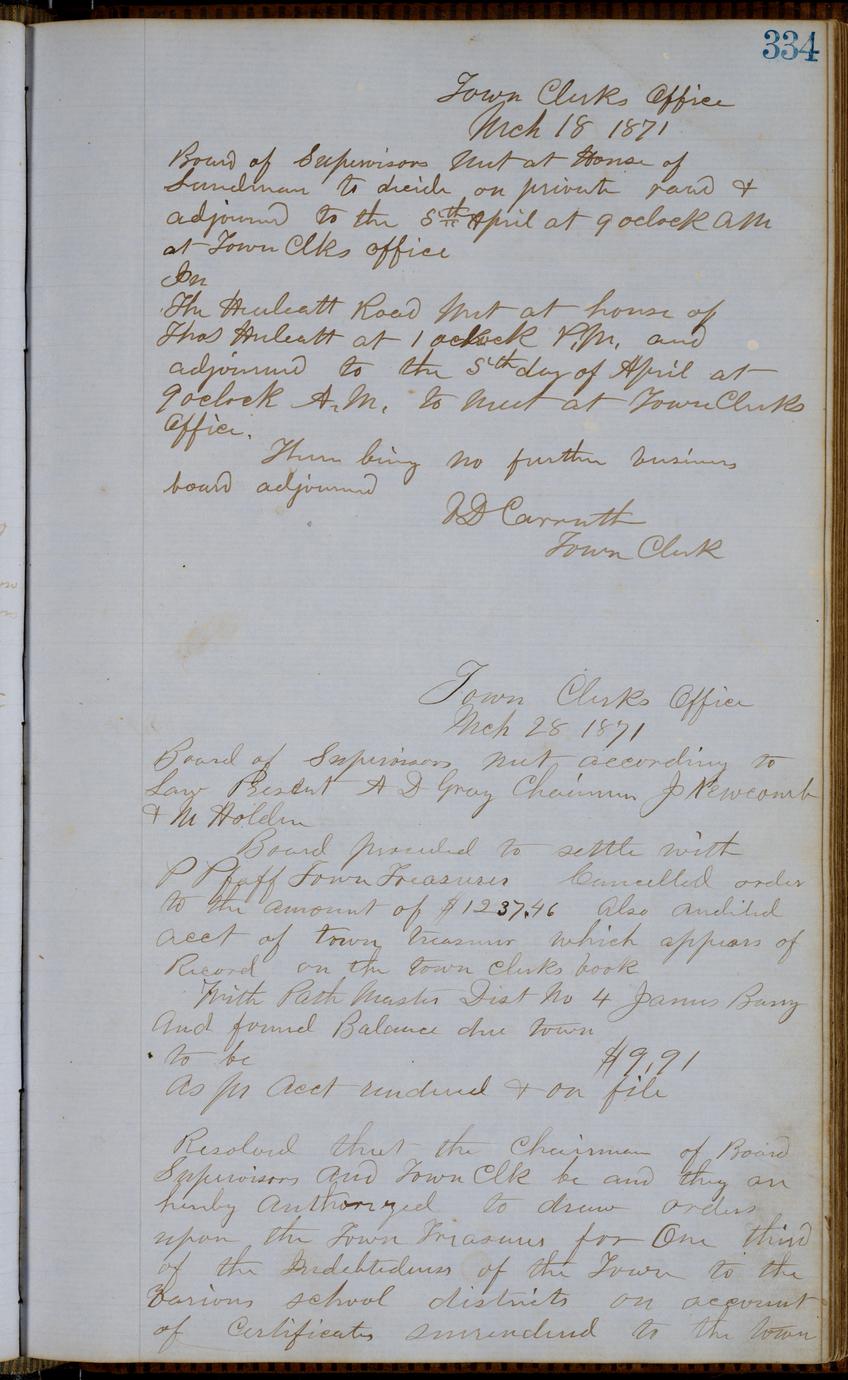 334
Town Clerks Office
Mch 18 1871
Board of Supervisors met at House of
Sundman to decide on private road &
adjourned to the 5th April at 9 oclock AM
at Town Clks office
In
The Huleatt Road Met at house of
Thos Huleatt at 1 oclock P.M. and
adjourned to the 5th day of April at
9 oclock A.M. to meet at Town Clerks
Office.
There being no further business
board adjourned
D Carruth
Town Clerk
Town Clerks Office
Mch 28 1871
Board of Supervisors met according to
Law Present A D Gray Chairman J Newcomb
& M Holden
Board proceeded to settle with
P Pfaff Town Treasurer Cancelled order
to the amount of $1237.46 Also audited
acct of town treasurer which appears of
Record on the town clerks book
With Path Master Dist No 4 James Barry
And found Balance due town
to be $9.91
As pr Acct rendered & on file
Resolved that the Chairman of Board
Supervisors And Town Clk be and they are
hereby Authorized to draw orders
upon the Town Treasurer for One third
of the Indebtedness of the Town to the
Various school districts on account
of Certificates surrendered to the town